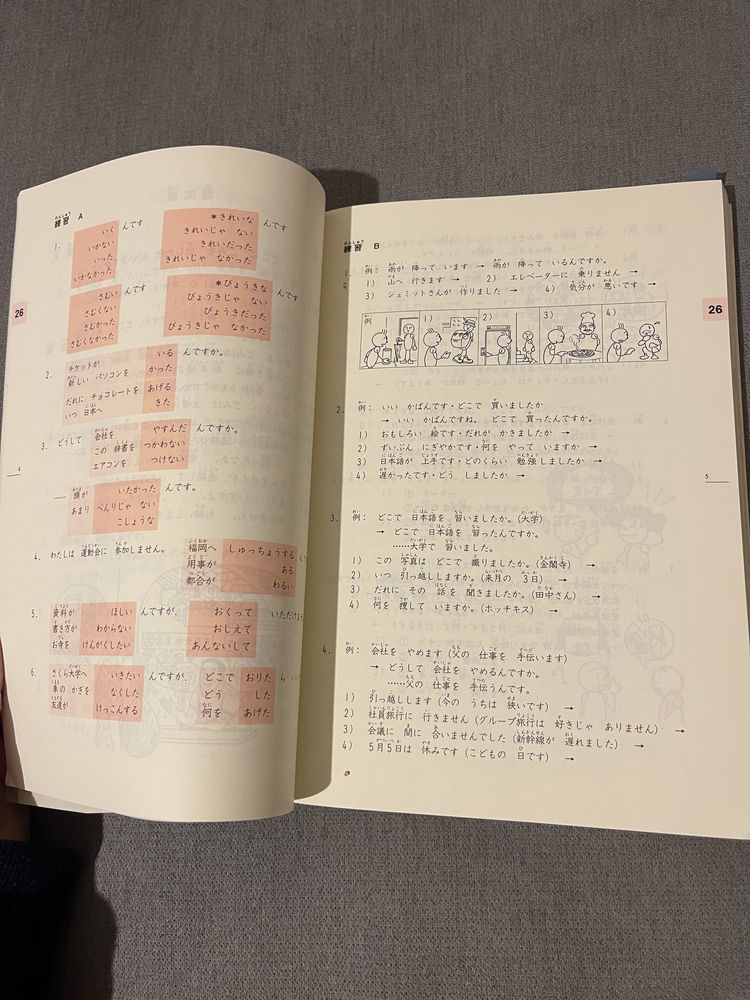 練習 A
1. いく んです
いかない
いった
いかなかった
*きれいな んです
きれいじゃ ない
きれいだった
きれいじゃ なかった
さむい んです
さむくない
さむかった
さむくなかった
*びょうきな んです
びょうきじゃ ない
びょうきだった
びょうきじゃ なかった
26
2. チケットが いる んですか。
新しい パソコンを かった
だれに チョコレートを あげる
いつ 日本へ きた
3. どうして 会社を やすんだ んですか。
この 辞書を つかわない
エアコンを つけない
…… 頭が いたかった んです。
あまり べんりじゃ ない
こしょうな
4. わたしは 運動会に 参加しません。 福岡へ しゅっちょうする ん
用事が ある
都合が わるい
5. 資料が ほしい んですが、 おくって いただけ
書き方が わからない おしえて
お寺を けんがくしたい あんないして
6. さくら大学へ いきたい んですが、 どこで おりた ら
車の かぎを なくした どう した
友達が けっこんする 何を あげた
4
練習 B
1. 例： 雨が 降って います → 雨が 降って いるんですか。
1） 山へ 行きます → 2） エレベーターに 乗りません →
3） シュミットさんが 作りました → 4） 気分が 悪いです →
例 1） 2） 3） 4）
26
2. 例： いい かばんです・どこで 買いましたか
→ いい かばんですね。 どこで 買ったんですか。
1） おもしろい 絵です・だれが かきましたか →
2） ずいぶん にぎやかです・何を やって いますか →
3） 日本語が 上手です・どのくらい 勉強しましたか →
4） 遅かったです・どう しましたか →
5
3. 例： どこで 日本語を 習いましたか。（大学）
→ どこで 日本語を 習ったんですか。
……大学で 習いました。
1） この 写真は どこで 撮りましたか。（金閣寺） →
2） いつ 引っ越ししますか。（来月の 3日） →
3） だれに その 話を 聞きましたか。（田中さん） →
4） 何を 捜して いますか。（ホッチキス） →
4. 例： 会社を やめます（父の 仕事を 手伝います）
→ どうして 会社を やめるんですか。
……父の 仕事を 手伝うんです。
1） 引っ越しします（今の うちは 狭いです） →
2） 社員旅行に 行きません（グループ旅行は 好きじゃ ありません） →
3） 会議に 間に 合いませんでした（新幹線が 遅れました） →
4） 5月5日は 休みです（こどもの 日です） →